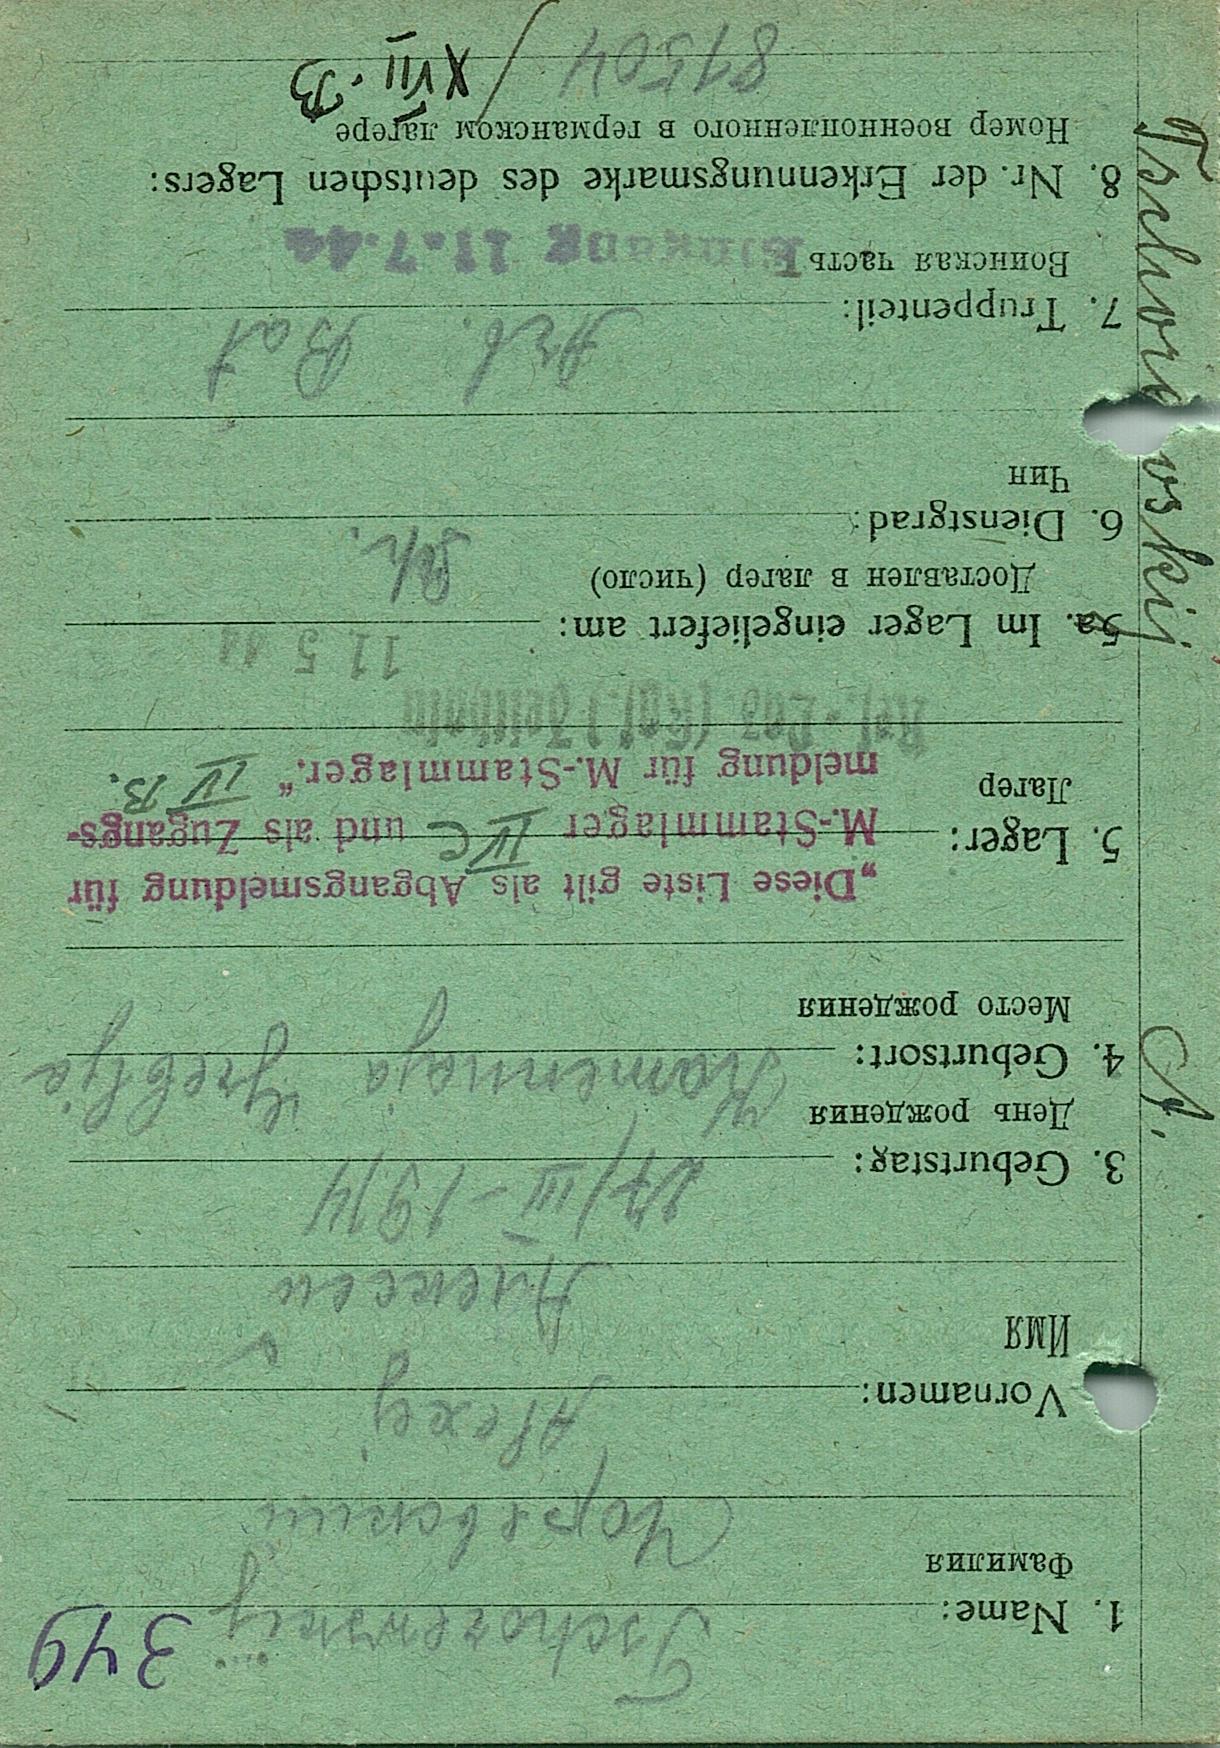 349
1. Name: Tschorewskij
Фамилия
Чорèвский
Vornamen: Alexej
Имя
Алексей
3. Geburtstag: 27/III-1914
День рождения
4. Geburtsort: Kamennaja Greblja
Место рождения
„Diese Liste gilt als Abgangsmeldung für
5. Lager: M.-Stammlager IV C und als Zugangs-
Лагер
meldung für M.-Stammlager.“ IV B.
Res.-Laz. (Kgf.) Zeithain
5a. Im Lager eingeliefert am: 11 5 44
Доставлен в лагер (число)
6. Dienstgrad:
Чин
7. Truppenteil: Arb. Bat
Воинская часть
Eingang 11.7.44
8. Nr. der Erkennungsmarke des deutschen Lagers:
Номер военнопленного в германском лагере
81504 / XVII.B
A.